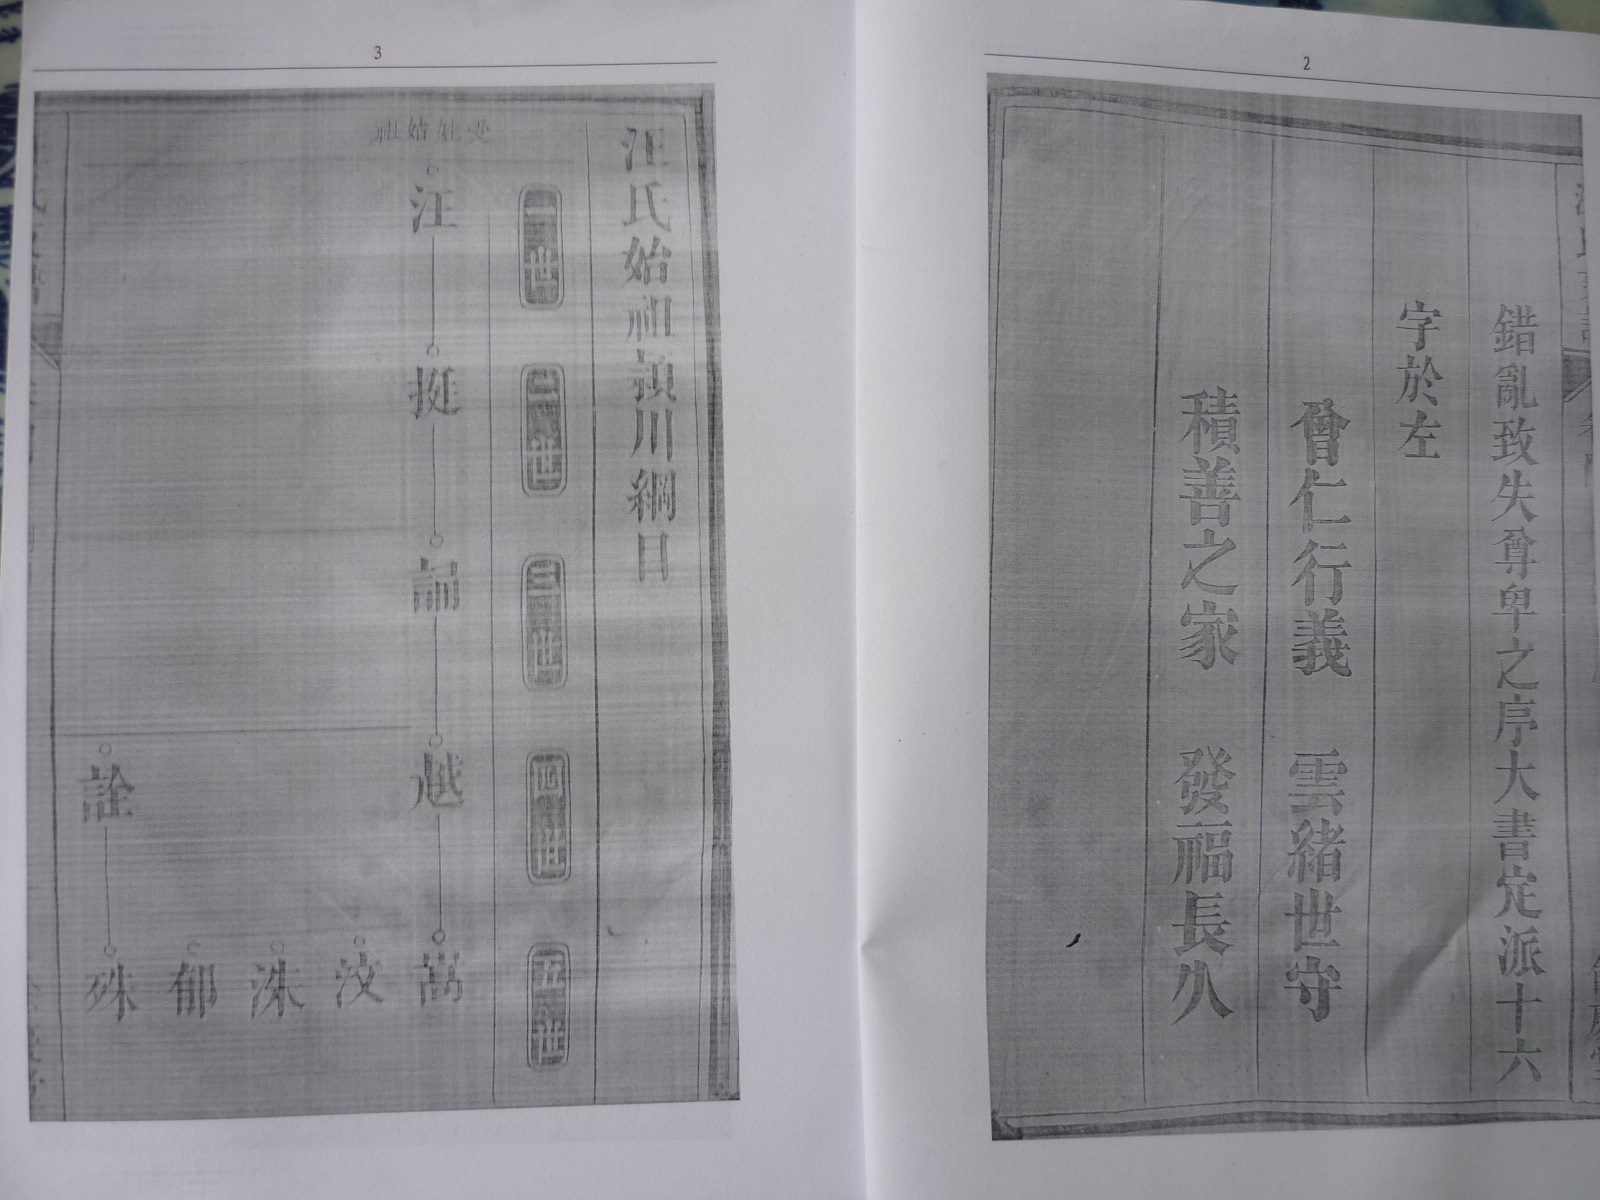 2
錯亂致失尊卑之序大書定派十六
字於左
曾仁行義 雲緒世守
積善之家 發福長久
3
汪氏始祖潁川綱目
一世
二世
三世
四世
五世
受姓始祖
汪
挺
誦
越 詮
嵩 汶 洙 郁 殊